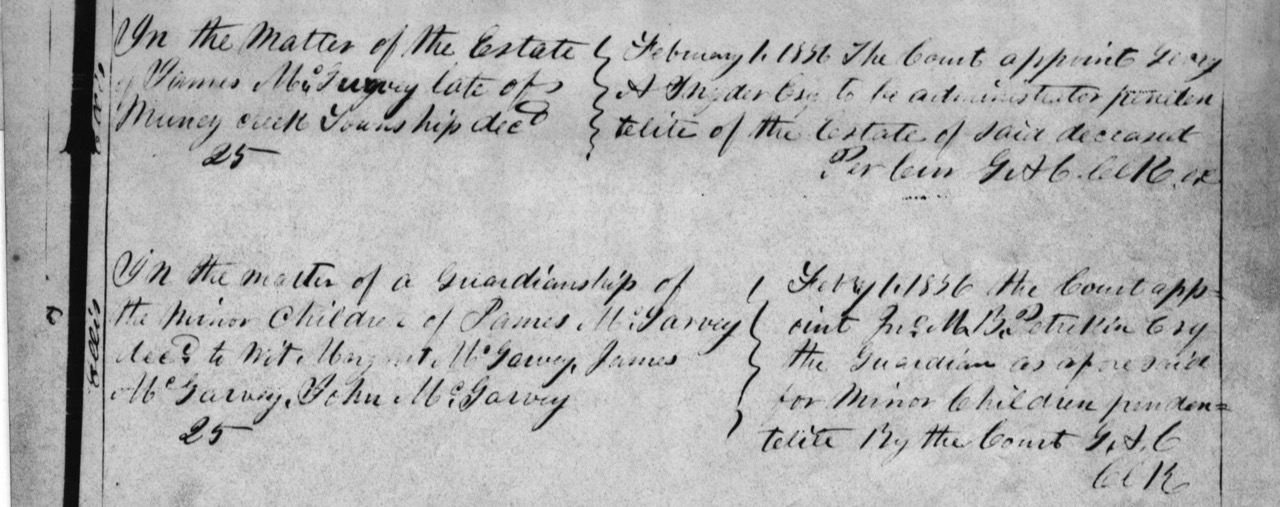 In the Matter of the Estate
of James McGarvey late of
Muncy creek Township decd
25
February 1. 1856 The Court appoint
A Snyder Esq to be administrator penden
telite of the Estate of said deceased
Per Cur G. A. C. ClK. ox
In the matter of a Guardianship of
the Minor Children of James Mc.Garvey
decd to Wit Margret McGarvey, James
McGarvey, John Mc.Garvey
25
Feb'y 1. 1856 the Court app=
oint Jno. M. B. Petrikin Esq
the Guardian as afore said
for Minor Children penden=
telite By the Court G. A. C
ClK